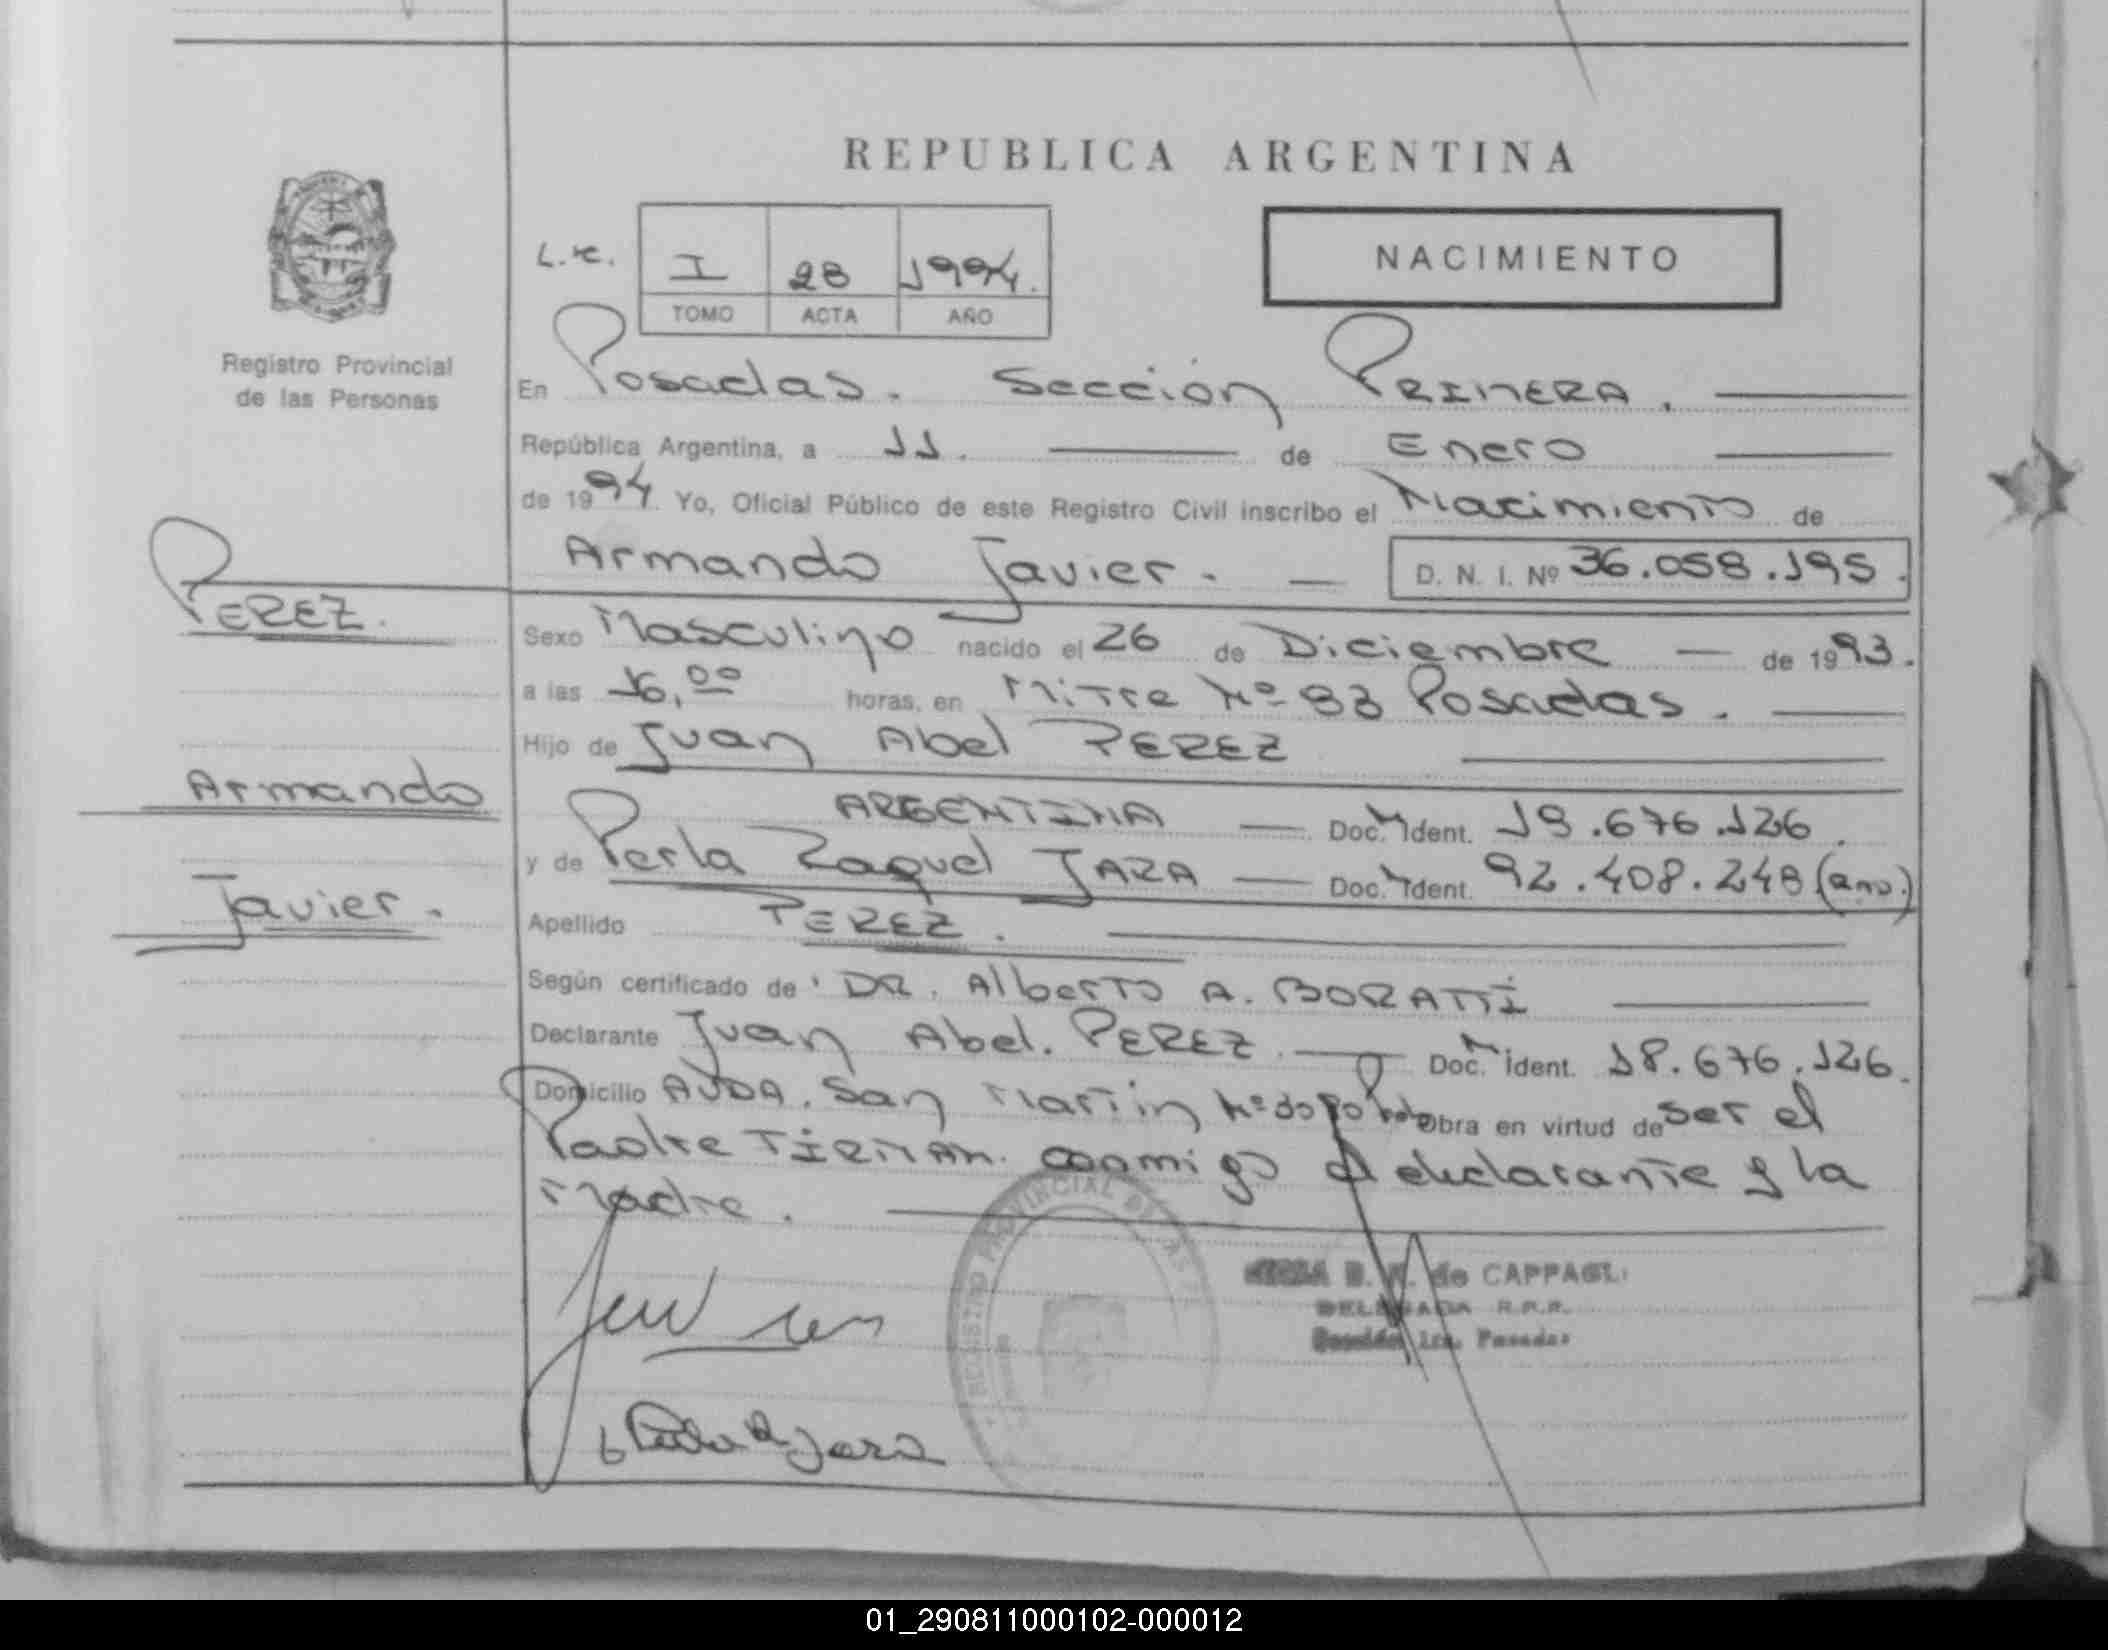 REPUBLICA ARGENTINA
NACIMIENTO
I 28 1994.
TOMO ACTA AÑO
Registro Provincial
de las Personas
En Posadas. Sección PRIMERA.
República Argentina, a 11. de Enero
de 1994. Yo, Oficial Público de este Registro Civil inscribo el Nacimiento de
Armando Javier. D. N. I. Nº 36.058.195.
PEREZ.
Armando
Javier.
Sexo Masculino nacido el 26 de Diciembre de 1993.
a las 16,00 horas, en Mitre Nº 83 Posadas.
Hijo de Juan Abel PEREZ
ARGENTINA Doc. Ident. 18.676.126.
y de Perla Raquel JARA Doc. Ident. 92.408.248
Apellido PEREZ.
Según certificado de DR. Alberto A. BORATTI
Declarante Juan Abel. PEREZ Doc. Ident. 18.676.126.
Domicilio AVDA. San Martin Obra en virtud de ser el
Padre FIRMAN conmigo el declarante y la
Madre.
REGISTRO PROVINCIAL DE LAS
B. de CAPPAGLI
DELEGADA R.P.P.
Sección 1ra. Posadas
Jara
01_290811000102-000012